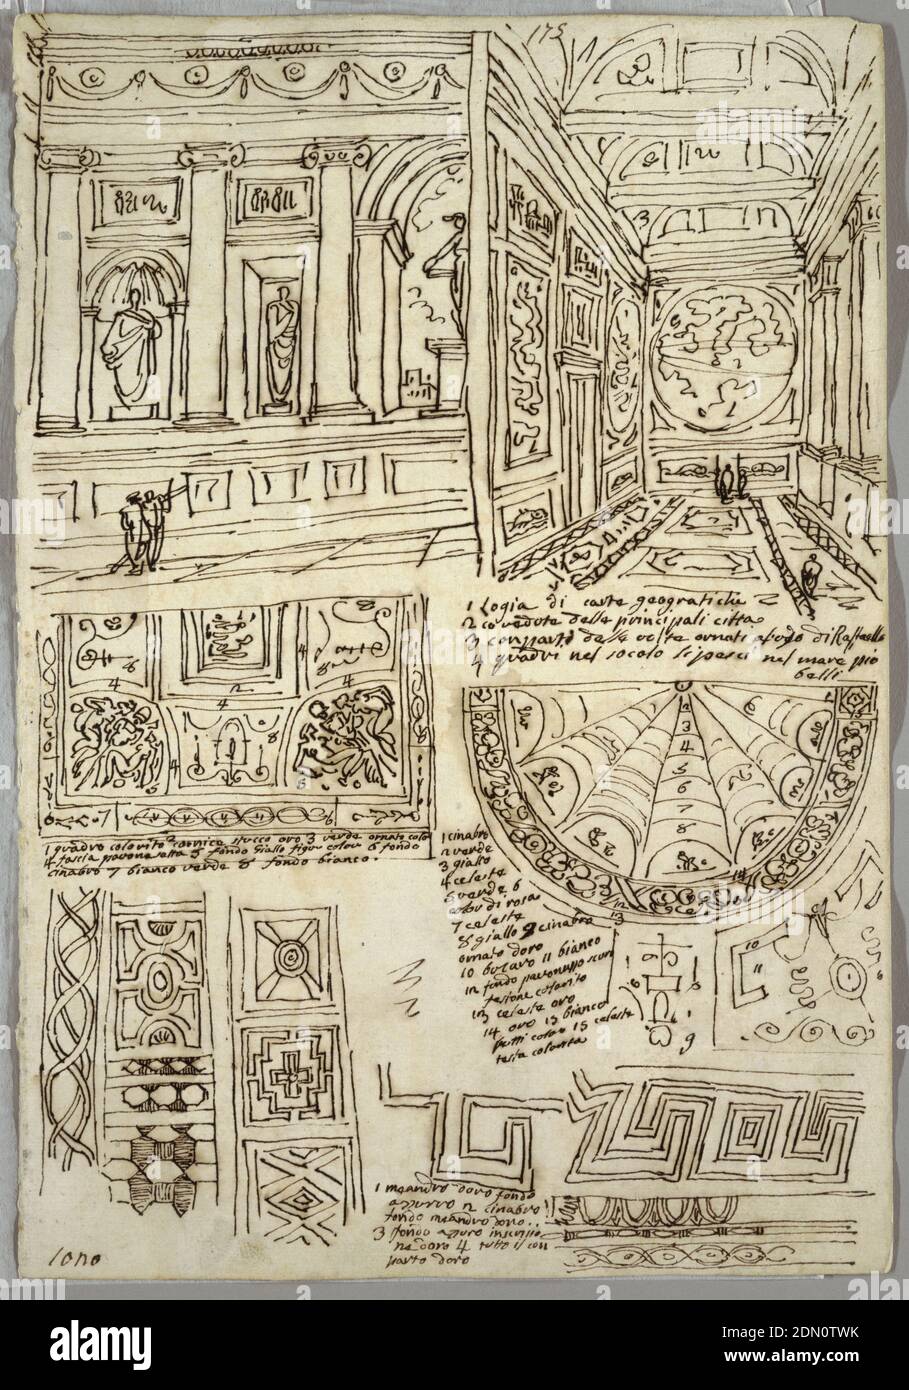 173
1 Logia di carte geografiche
2 co vedute delle principali citta
3 comparto delle volte ornati a fogo di Raffaello
4 quadri nel socolo li pesci nel mare piò
belli
1 quadro colorito 2 cornice stucco oro 3 verde ornato color
4 fascia pavonazetta 5 fondo giallo figur colou 6 fondo
cinabro 7 bianco verde 8 fondo bianco.
1 cinabro
2 verde
3 giallo
4 celeste
5 verde 6
color di rosa
7 celeste
8 giallo 9 cinabro
ornato doro
10 11 bianco
12 fondo
testone colorito
13 celeste oro
14 oro 15 bianco
putti color 15 celeste
testa colorita
1 meandro doro fondo
azzurro 2 cinabro
fondo meandro doro..
3 fondo azuro
ne doro 4 tutto il con
parto doro
1000
alamy
Image ID: 2DN0TWK
www.alamy.com